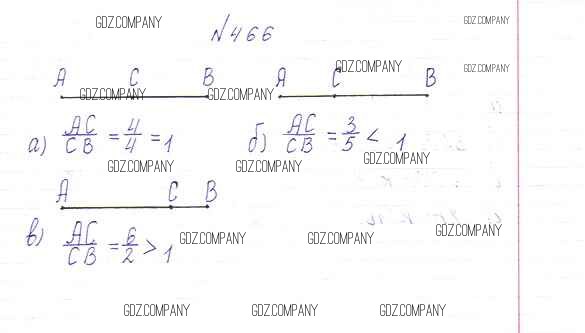 GDZ.COMPANY
№ 466
GDZ.COMPANY
A C B A C B
GDZ.COMPANY
GDZ.COMPANY
GDZ.COMPANY GDZ.COMPANY
а) AC/CB = 4/4 = 1 б) AC/CB = 3/5 < 1
GDZ.COMPANY GDZ.COMPANY GDZ.COMPANY
A C B
в) AC/CB = 6/2 > 1
GDZ.COMPANY GDZ.COMPANY GDZ.COMPANY
GDZ.COMPANY GDZ.COMPANY GDZ.COMPANY